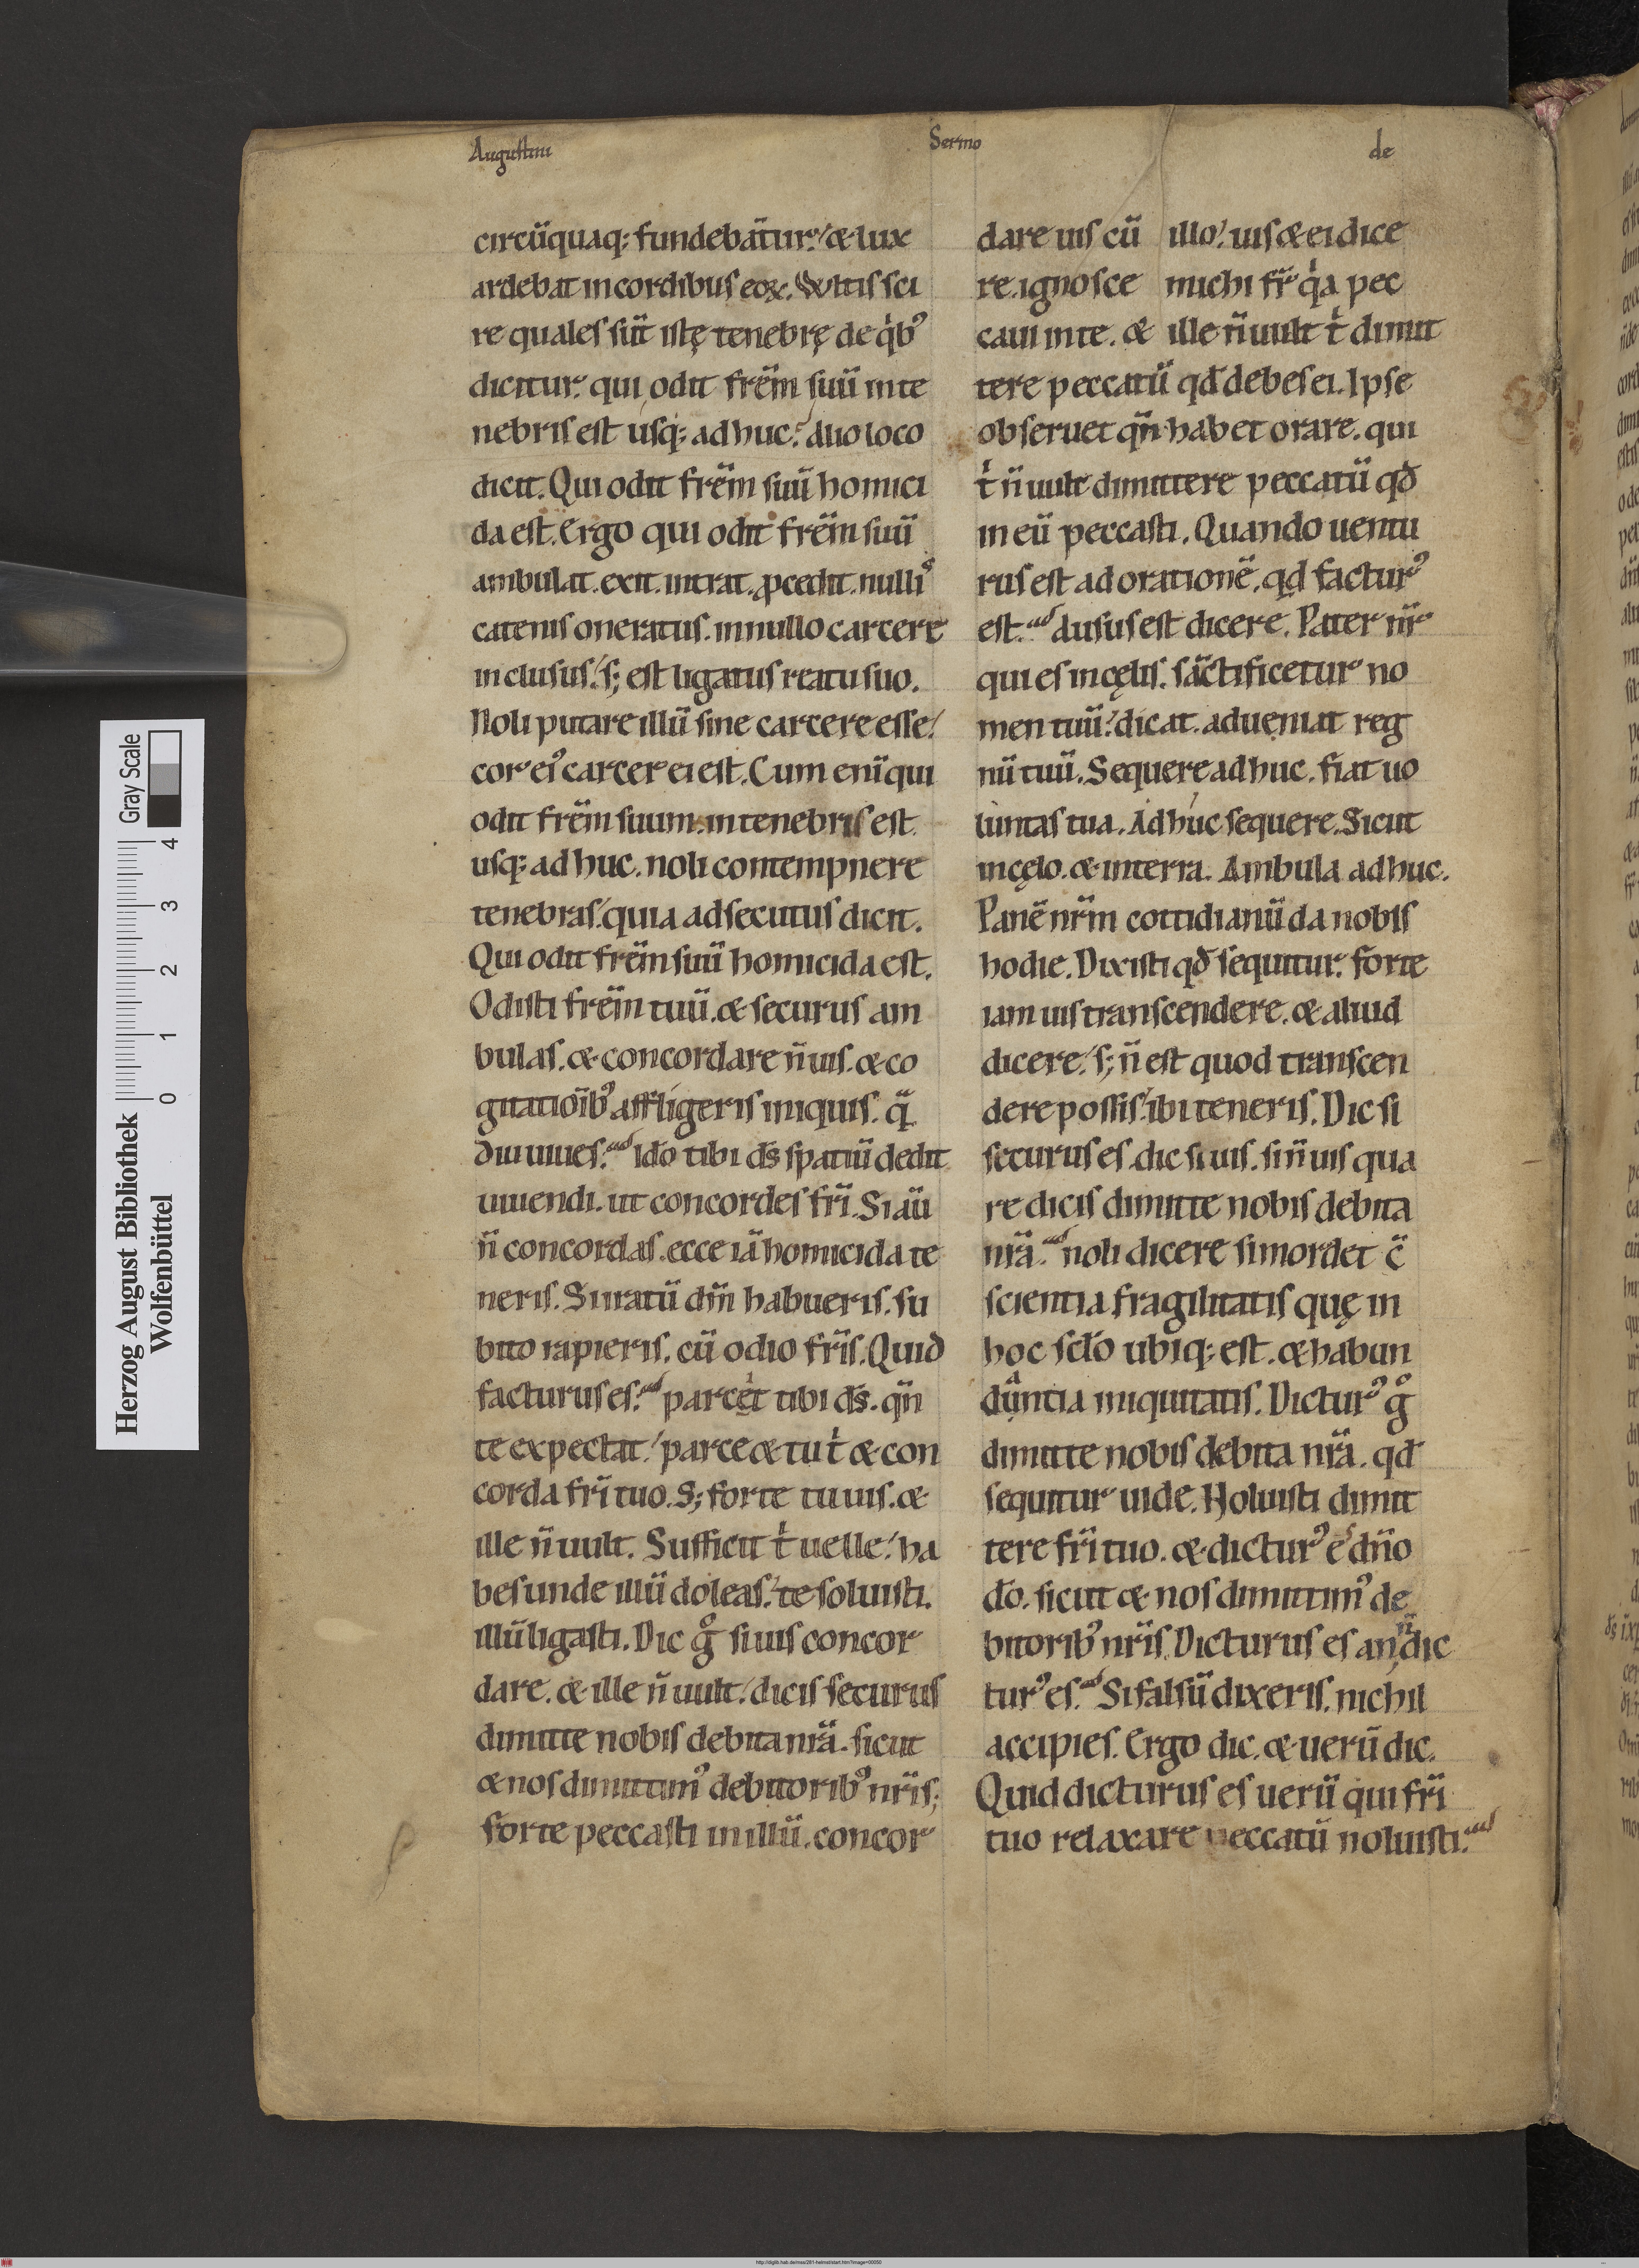 Augustini
Sermo
de
circūquaq; fundebātur. & lux
ardebat in cordibus eoꝝ. Vultis sci
re quales sūt istę tenebrę de q̍bꝰ
dicitur. qui odit frēm suū in te
nebris est usq; adhuc? alio loco
dicit. Qui odit frēm suū homici
da est. Ergo qui odit frēm suū
ambulat. exit. intrat. ꝓcedit. nulliꝰ
catenis oneratus. in nullo carcere
inclusus. s; est ligatus reatu suo.
Noli putare illū sine carcere esse.
cor eiꝰ carcer ei est. Cum enī qui
odit frēm suum. in tenebris est
usq; adhuc. noli contempnere
tenebras. quia adsecutus dicit.
Qui odit frēm suū homicida est.
Odisti frēm tuū. & securus am
bulas. & concordare n̄ uis. & co
gitatiōibꝰ affligeris iniquis. q̄
diu uiues? Idō tibi ds̄ spatiū dedit
uiuendi. ut concordes frī. Si aū
n̄ concordas. ecce iā homicida te
neris. Si iratū dn̄m habueris. su
bito rapieris. cū odio fr̄is. Quid
facturus es? parcet tibi ds̄. qn̄
te expectat. parce & tu t̍ & con
corda frī tuo. S; forte tu uis. &
ille n̄ uult. Sufficit t̍ uelle. ha
bes unde illū doleas. te soluisti.
illū ligasti. Dic g̊ si uis concor
dare. & ille n̄ uult. dicis securus
dimitte nobis debita nr̄a. sicut
& nos dimittimꝰ debitoribꝰ nr̄is;
forte peccasti in illū. concor
dare uis cū illo. uis & ei dice
re. ignosce michi fr̄ q̍a pec
caui in te. & ille n̄ uult t̍ dimit
tere peccatū qd̄ debes ei. Ipse
obseruet qn̄ habet orare. qui
t̍ n̄ uult dimittere peccatū qd̄
in eū peccasti. Quando uentu
rus est ad orationē. qd factur̕
est? ausus est dicere. Pater nr̄
qui es in cęlis. sāctificetur no
men tuū? dicat. adueniat reg
nū tuū. Sequere adhuc. fiat uo
luntas tua. Adhuc sequere. Sicut
in cęlo. & in terra. Ambula adhuc.
Panē nr̄m cottidianū da nobis
hodie. Dixisti qd̄ sequitur. forte
iam uis transcendere. & aliud
dicere. s; n̄ est quod transcen
dere possis. ibi teneris. Dic si
securus es. dic si uis. si n̄ uis qua
re dicis dimitte nobis debita
nr̄a? noli dicere si mordet c̄
scientia. fragilitatis quę in
hoc sclō ubiq; est. & habun
dantia iniquitatis. Dicturꝰ g̊
dimitte nobis debita nr̄a. qd̄
sequitur uide. Noluisti dimit
tere frī tuo. & dicturꝰ es dn̄o
dō. sicut & nos dimittimꝰ de
bitoribꝰ nr̄is. Dicturus es an n̄ dic
turꝰ es? Si falsū dixeris. nichil
accipies. Ergo dic. & uerū dic.
Quid dicturus es uerū qui frī
tuo relaxare peccatū noluisti?
Herzog August Bibliothek
Wolfenbüttel
Gray Scale
0 1 2 3 4
http://diglib.hab.de/mss/281-helmst/start.htm?image=00050